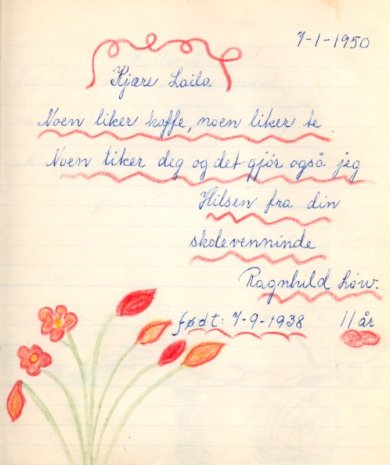 7-1-1950
Kjære Laila
Noen liker kaffe, noen liker te.
Noen liker deg og det gjór også jeg
Hilsen fra din
skolevenninde
Ragnhild Löw.
født: 7-9-1938 11 år